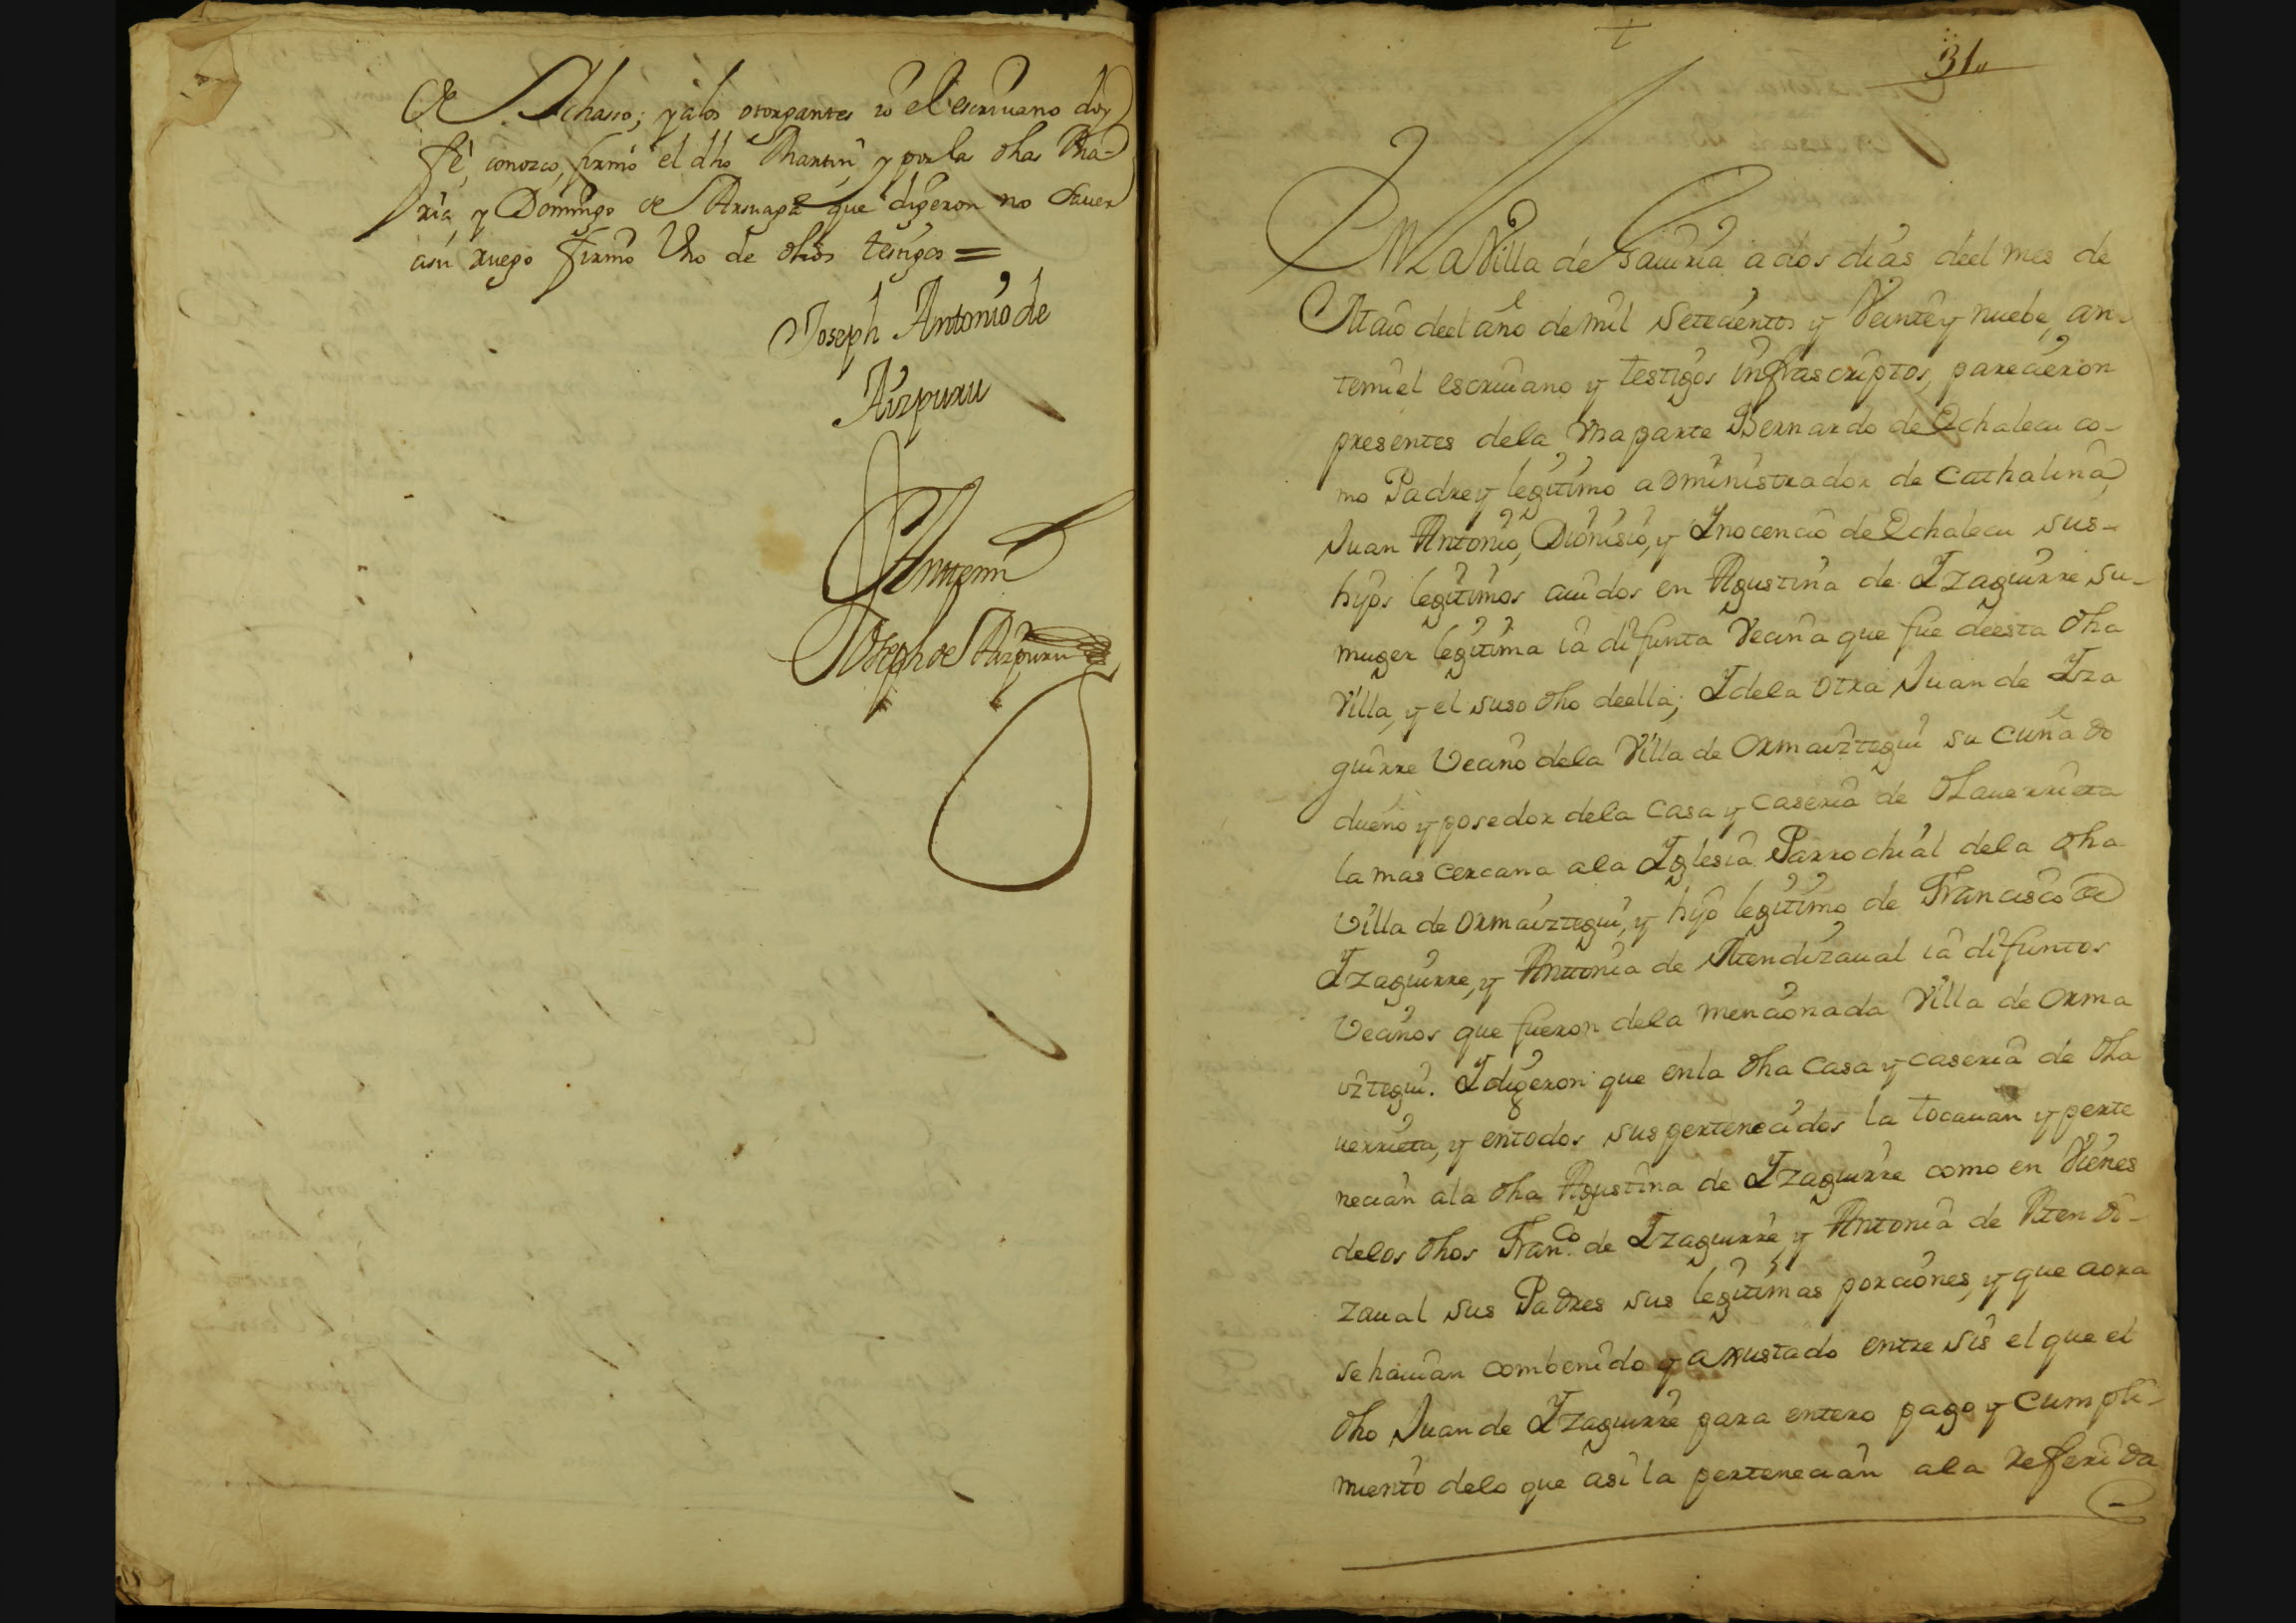 de Achasso; y a los otorgantes io el escriuano doy
fè, conozco, firmò el dho Martin, y por la dha Ma-
ria, y Domingo de Arsuaga que digeron no sauer
a su ruego firmò Uno de dhos testigos =
Joseph Antonio de
Aizpuru
Antemi
Joseph de Aizpuru
31
En La Villa de Gauiria a dos dias deel mes de
Maio deel año de mil setecientos y Veinte y nuebe, an-
temi el escriuano y testigos infrascriptos, parecieron
presentes de la Vna parte Bernardo de Echalecu co-
mo Padre y legitimo administrador de Cathalina,
Juan Antonio, Dionisio, y Inocencio de Echalecu sus-
hijos legitimos auidos en Agustina de Yzaguirre su-
muger legitima ia difunta Vecina que fue deesta dha
Villa, y el suso dho deella; Y de la otra Juan de Yza
guirre Vecino de la Villa de Ormaiztegui su cuñado
dueño y posedor de la Casa y caseria de Olauerrieta
la mas cercana a la Yglesia Parrochial de la dha
Villa de Ormaiztegui, y hijo legitimo de Francisco de
Yzaguirre, y Antonia de Mendizaual ia difuntos
Vecinos que fueron de la mencionada Villa de Orma
iztegui. Y digeron que en la dha Casa y caseria de Ola
uerrieta, y en todos sus pertenecidos la tocauan y perte
necian a la dha Agustina de Yzaguirre como en Vienes
de los dhos Fran.co de Yzaguirre y Antonia de Mendi-
zaual sus Padres sus legitimas porciones, y que aora
se hauian combenido y axustado entre sis el que el
dho Juan de Yzaguirre para entero pago y cumpli-
miento de lo que asi la pertenecian a la referida